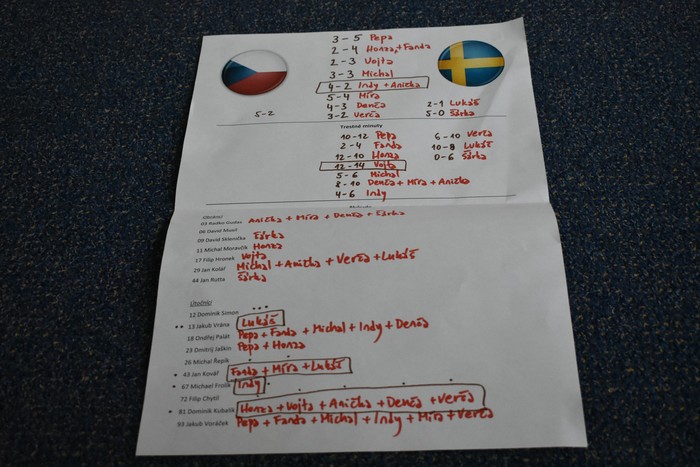 3 - 5 Pepa
2 - 4 Honza + Fanda
2 - 3 Vojta
3 - 3 Michal
4 - 2 Indy + Anička
5 - 4 Míra
4 - 3 Denča 2 - 1 Lukáš
5 - 2 3 - 2 Verča 5 - 0 Šárka
Trestné minuty
10 - 12 Pepa 6 - 10 Verča
2 - 4 Fanda 10 - 8 Lukáš
12 - 10 Honza 0 - 6 Šárka
12 - 14 Vojta
5 - 6 Michal
8 - 10 Denča + Míra + Anička
4 - 6 Indy
03 Radko Gudas Anička + Míra + Denča + Šárka
06 David Musil
09 David Sklenička Šárka
11 Michal Moravčík Honza
17 Filip Hronek Vojta
29 Jan Kolář Michal + Anička + Verča + Lukáš
44 Jan Rutta Šárka
Útočníci
12 Dominik Simon
13 Jakub Vrána Lukáš
18 Ondřej Palát Pepa + Fanda + Michal + Indy + Denča
23 Dmitrij Jaškin Pepa + Honza
26 Michal Řepík
43 Jan Kovář Fanda + Míra + Lukáš
67 Michael Frolík Indy
72 Filip Chytil
81 Dominik Kubalík Honza + Vojta + Anička + Denča + Verča
93 Jakub Voráček Pepa + Fanda + Michal + Indy + Míra + Verča